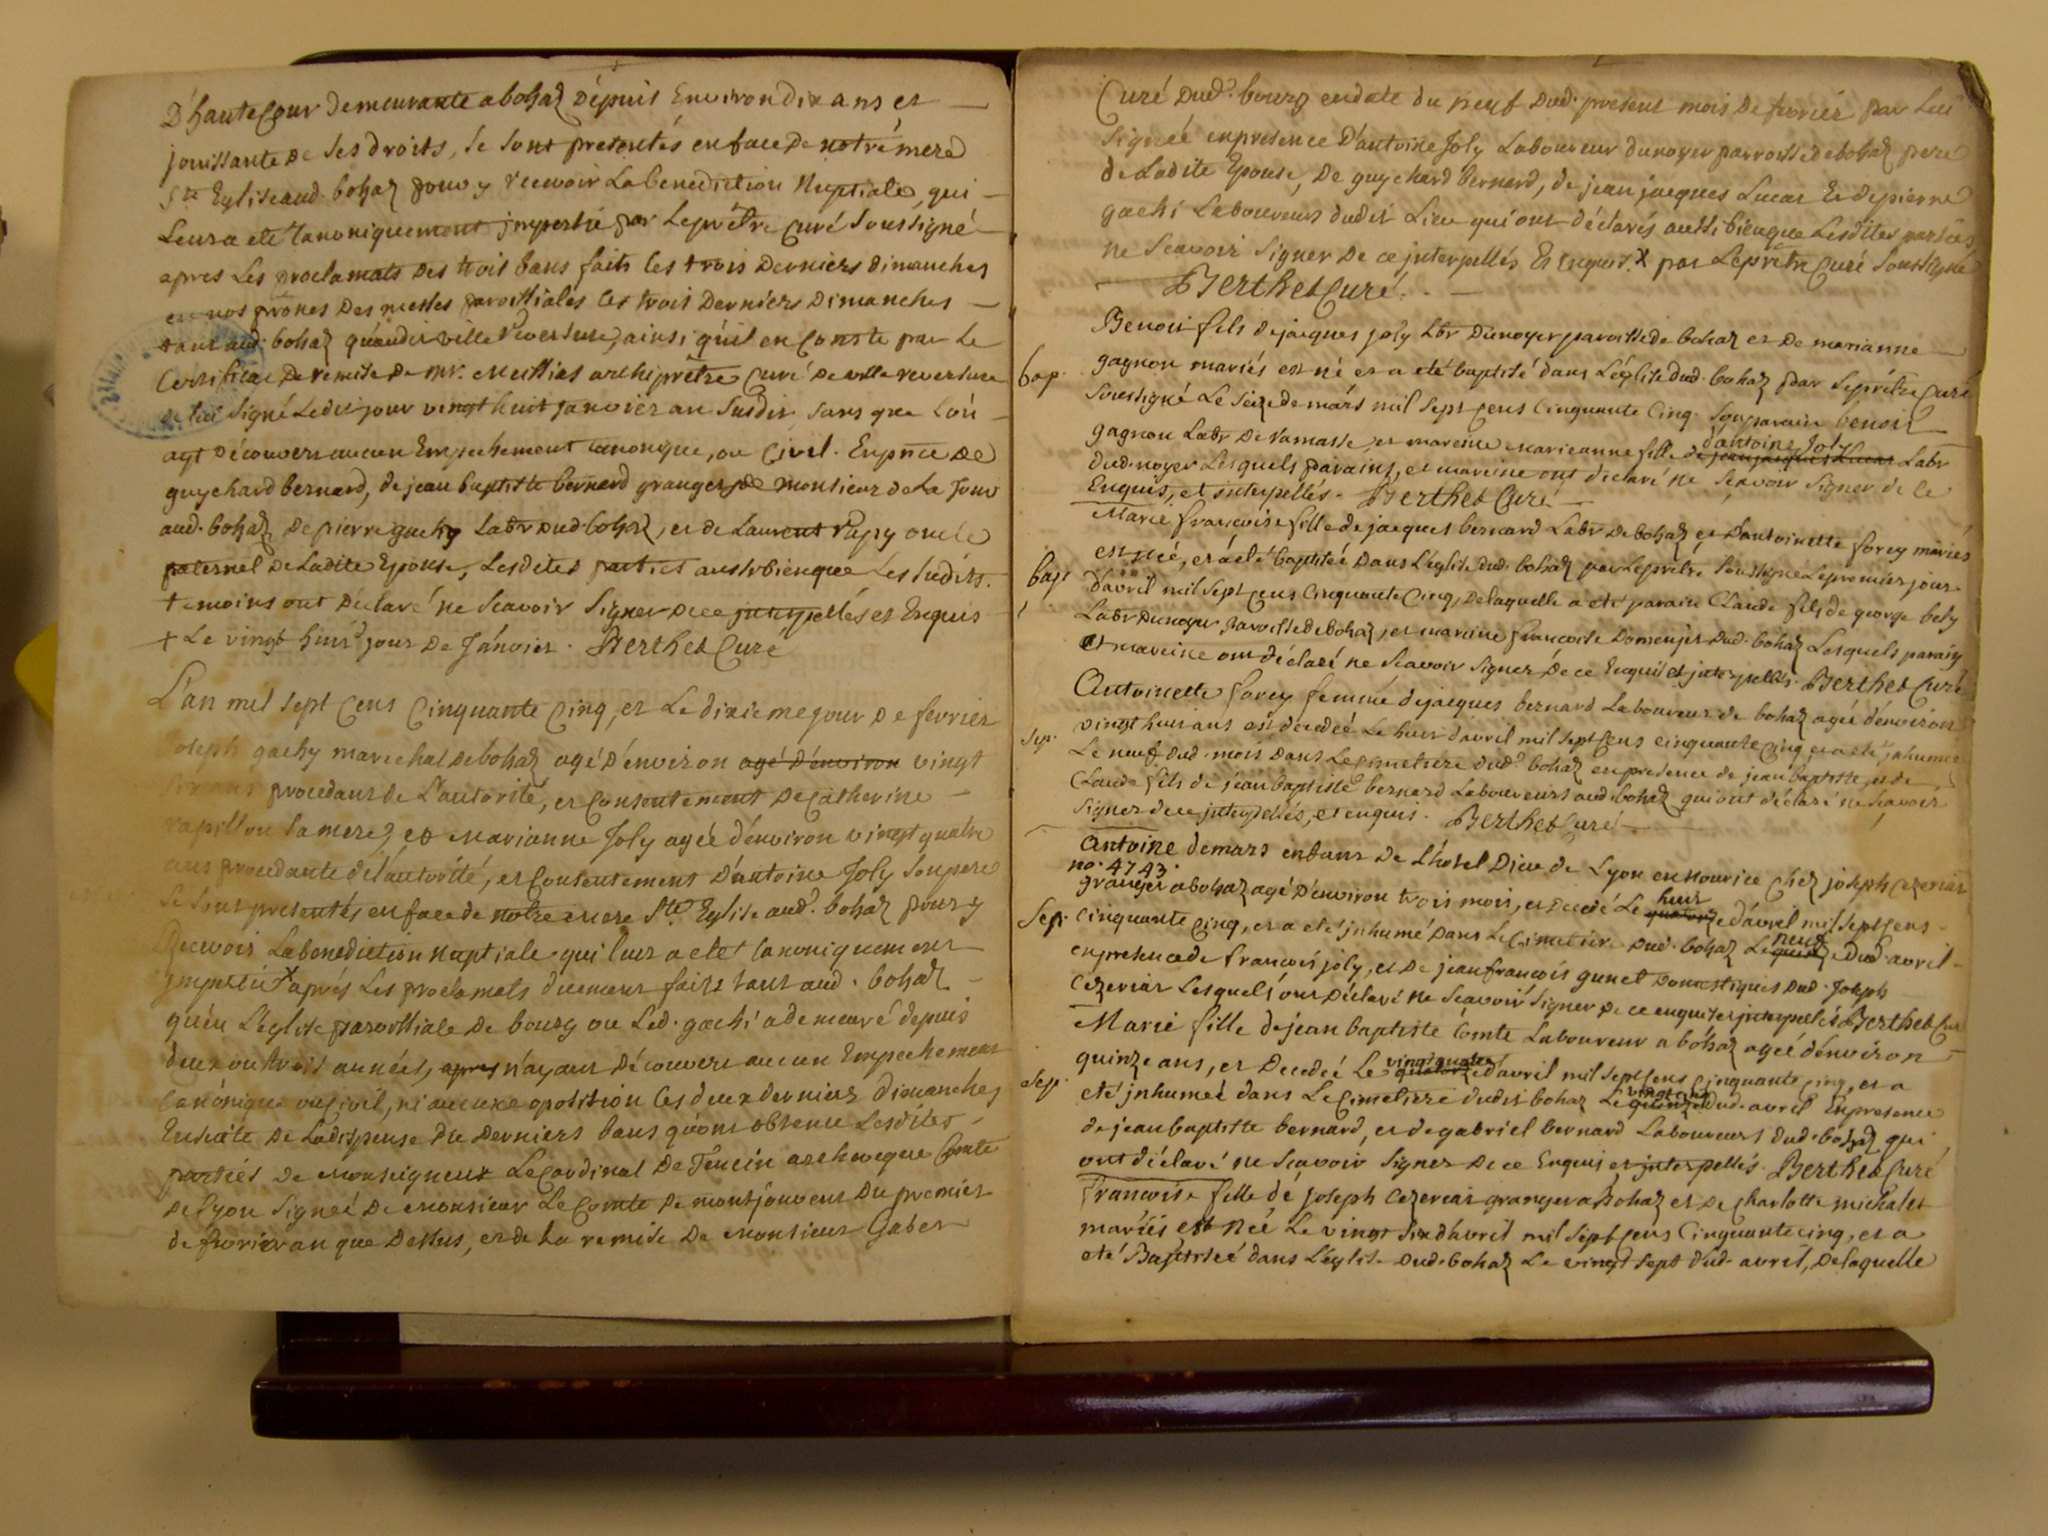 D'hauteCour demeurante a bohaz Dépuis Environ dix ans et
jouissante de ses droits, se sont presentés en face de notre mere
Ste Eglise aud. bohaz pour y recevoir La benediction Nuptiale, qui
Leur a eté Canoniquement impertie par Le prêtre Curé Soussigné
apres Les proclamats des trois bans faits les trois Derniers dimanches
en nos prônes Des messes paroissiales les trois Derniers Dimanches
tant aud. bohaz qu'audit ville reversure, ainsi qu'il en Conste par Le
Certificat De remise De mr. archiprêtre Curé De ville reversure
de lui Signé Ledit jour vingt huit janvier an Susdit, sans que L'on
ayt Découvert aucun Empechement Canonique, ou Civil. En pnce De
guychard bernard, de jean baptiste bernard granger de monsieur de La
aud. bohaz De pierre gachy Labr dud. bohaz, et de Laurent rapy oncle
paternel De Ladite Epouse, Lesdites parties aussi bien que Les Sudits
temoins ont Déclaré ne Scavoir Signer de ce interpellés et Enquis
+ Le vingt huit jour De Janvier. Berthet Curé
L'an mil sept Cens Cinquante Cinq, et Le dixieme jour De fevrier
Joseph gachy marechal De bohaz agé D'environ agé D'environ vingt
six ans procedant de L'autorité, et Consentement De Catherine
rapillou sa mere, et Marianne Joly agée d'environ vingt quatre
ans procedante de L'autorité, et Consentement D'antoine Joly Son pere
Se Sont presentés en face de notre mere Ste Eglise aud. bohaz pour y
Recevoir La benediction nuptiale qui leur a eté Canoniquement
impertie + aprés Les proclamats duement faits tant aud. bohaz
qu'en L'eglise paroissiale De bourg ou Led. gachi a demeuré depuis
deux ou trois années, apres n'ayant Découvert aucun Empechement
Canonique ou Civil, ni aucune oposition les deux derniers Dimanches
Ensuite De La dispense Des Derniers bans qu'ont obtenu Lesdites
parties De Monseigneur Le Cardinal De Tencin archeveque Comte
de Lyon Signée De Monsieur Le Comte De montjouvent Du premier
de fevrier an que Dessus, et de La remise De Monsieur Gaber
Curé dud. bourg en date du neuf dud. present mois De fevrier par Lui
Signée en presence D'antoine Joly Laboureur du noyer parroisse de bohaz pere
de Ladite Epouse, De guychard bernard, de jean jacques Lucas Et de pierre
gachi Laboureurs dudit Lieu qui ont déclarés aussi bien que Lesdites parties
ne Scavoir Signer De ce interpellés Et Enquis. X par Le prêtre Curé Soussigné
Berthet Curé.
Benoit fils de jacques joly Lbr du noyer paroisse de bohaz et De marianne
bap. gagnon mariés est né et a eté baptisé dans L'église dud. bohaz par Le prêtre Curé
Soussigné Le Seize de mars mil sept Cens Cinquante Cinq. Son parain benoit
gagnon Labr De ramasse, et mareine Marieanne fille d'antoine Joly de jean jacques Lucas Labr
dud. noyer Lesquels parains, et mareine ont declaré ne Scavoir Signer de Ce
Enquis, et interpellés. Berthet Curé
Marie francoise fille de jacques bernard Labr De bohaz et D'antoinette forey mariés
bap. est née, et a eté baptisée Dans L'église dud. bohaz par Le prêtre Soussigné Le premier jour
d'avril mil Sept Cens Cinquante Cinq, De laquelle a eté parain Claude fils de george bely
Labr Du noyer paroisse de bohaz, et mareine francoise Domenjet dud. bohaz Lesquels parain
et mareine ont déclaré ne Scavoir Signer De ce Enquis et interpellés. Berthet Curé
Antoinette forey femme de jacques bernard Laboureur de bohaz agée d'environ
sep. vingt huit ans est decedée Le huit d'avril mil sept Cens cinquante Cinq et a eté inhumée
Le neuf dud. mois dans Le cimetiere dud. bohaz en presence de jean baptiste, et de
Claude fils de jean baptiste bernard Laboureurs aud. bohaz qui ont déclaré ne Scavoir
Signer de ce interpellés, et enquis. Berthet Curé
Antoine demars enfant De L'hotel Dieu de Lyon en nourice chez joseph Cezeriat
no. 4743.
granger a bohaz agé D'environ trois mois, est decedé Le huit quatorze d'avril mil Sept Cens
Sep. Cinquante Cinq, et a eté inhumé Dans Le Cimetiere dud. bohaz Le neuf quinze dud. avril
en presence de francois joly, et De jean francois gunet Domestiques dud. Joseph
Cezeriat Lesquels ont Déclaré ne Scavoir Signer De ce enquis et interpellés Berthet Curé
Marie fille de jean baptiste Comte Laboureur a bohaz agée d'environ
quinze ans, est Decedée Le vingt quatre quatorze d'avril mil Sept Cens Cinquante Cinq, et a
sep. eté inhumée dans Le Cimetiere dudit bohaz Le vingt cinq quinze dud. avril En presence
de jean baptiste bernard, et de gabriel bernard Laboureurs dud. bohaz qui
ont déclaré ne Scavoir Signer De ce Enquis et interpellés. Berthet Curé
francoise fille de joseph Cezeriat granger a Bohaz et De charlotte michalet
mariés est Née Le vingt Six d'avril mil Sept Cens Cinquante cinq, et a
eté Baptisée dans L'eglise dud. bohaz Le vingt Sept dud. avril, De laquelle